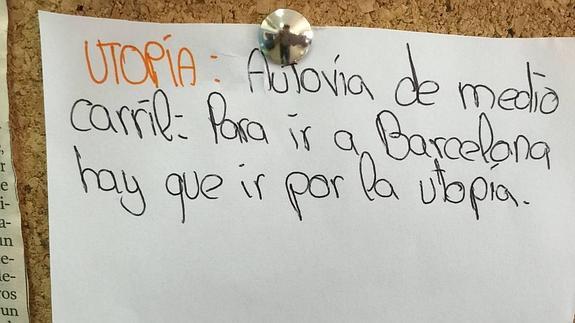 UTOPÍA: Autovia de medio
carril: Para ir a Barcelona
hay que ir por la utopía.